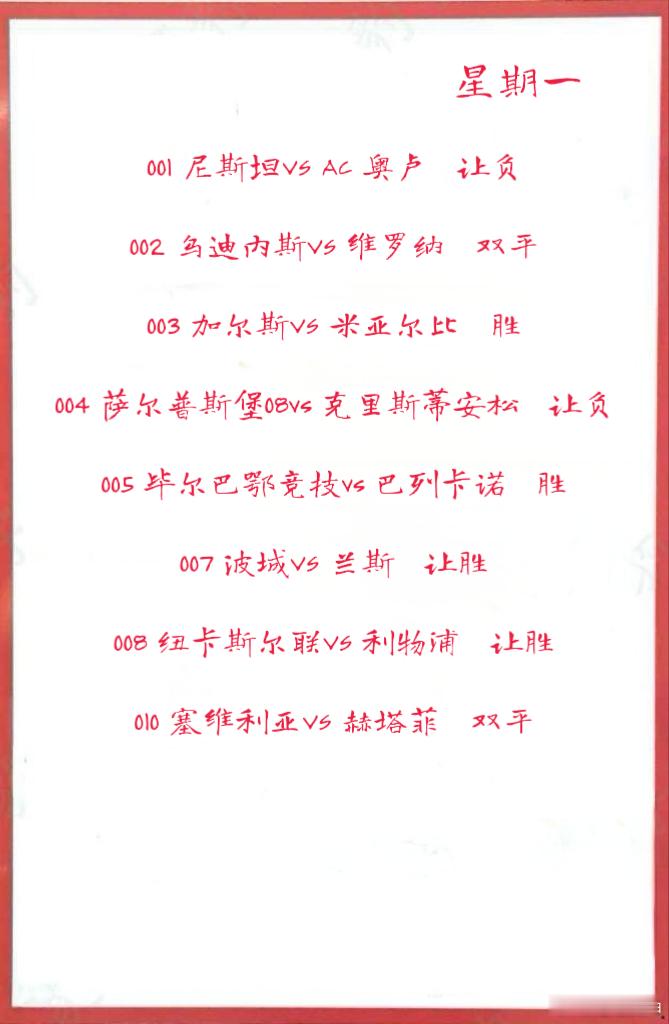 星期一
001 尼斯坦VS AC 奥卢 让负
002 乌迪内斯VS 维罗纳 双平
003 加尔斯VS 米亚尔比 胜
004 萨尔普斯堡08vs 克里斯蒂安松 让负
005 毕尔巴鄂竞技vs 巴列卡诺 胜
007 波城VS 兰斯 让胜
008 纽卡斯尔联VS 利物浦 让胜
010 塞维利亚VS 赫塔菲 双平